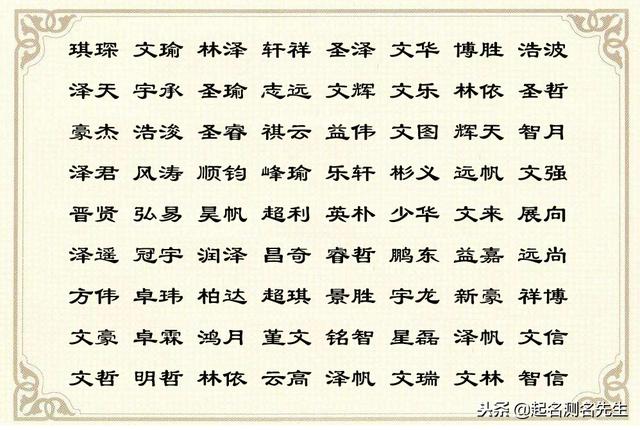 琪琛 文瑜 林泽 轩祥 圣泽 文华 博胜 浩波
泽天 宇承 圣瑜 志远 文辉 文乐 林依 圣哲
豪杰 浩浚 圣睿 祺云 益伟 文图 辉天 智月
泽君 风涛 顺钧 峰瑜 乐轩 彬义 远帆 文强
晋贤 弘易 昊帆 超利 英朴 少华 文来 展向
泽遥 冠宇 润泽 昌奇 睿哲 鹏东 益嘉 远尚
方伟 卓玮 柏达 超琪 景胜 宇龙 新豪 祥博
文豪 卓霖 鸿月 堇文 铭智 星磊 泽帆 文信
文哲 明哲 林依 云高 泽帆 文瑞 文林 智信
头条@起名测名先生